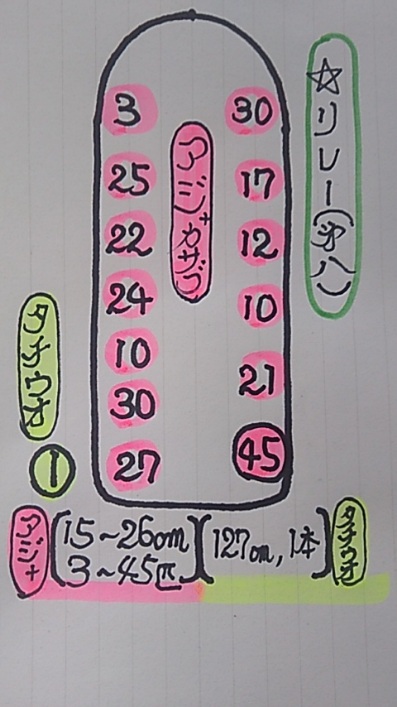 ☆リレー(第八)
3 30
25 17
アジ+カサゴ
22 12
24 10
10
30 21
27 45
タチウオ
1
アジ+ (15~26cm 3~45匹) (127cm, 1本) タチウオ